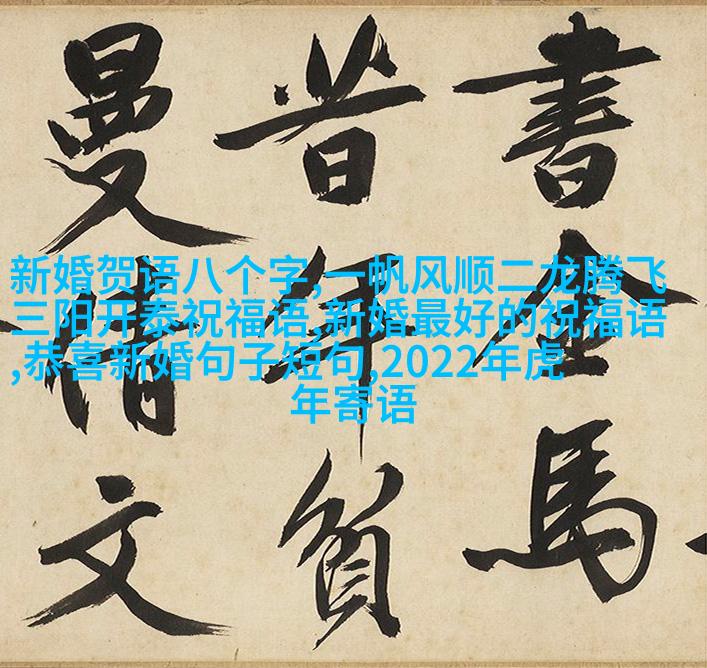 書金馬
昔年貧
曼倩文
新婚贺语八个字,一帆风顺二龙腾飞
三阳开泰祝福语,新婚最好的祝福语
,恭喜新婚句子短句,2022年虎
年寄语